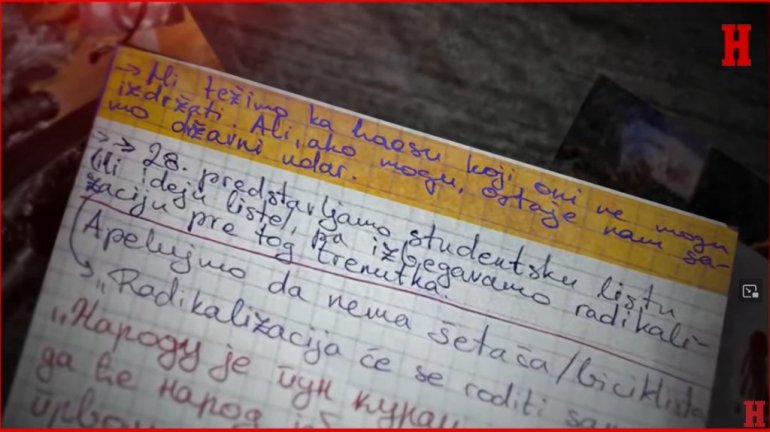 H
→ Mi težimo ka haosu koji oni ne mogu
izdržati. Ali, ako mogu, ostaje nam sa-
mo državni udar.
→→ 28. predstavljamo studentsku listu
(ili ideju liste), pa izbegavamo radikali-
zaciju pre tog trenutka.
Apelujmo da nema šetača/biciklista
→ „Radikalizacija će se roditi sam
„Народу је пун курац
да ће народ
H